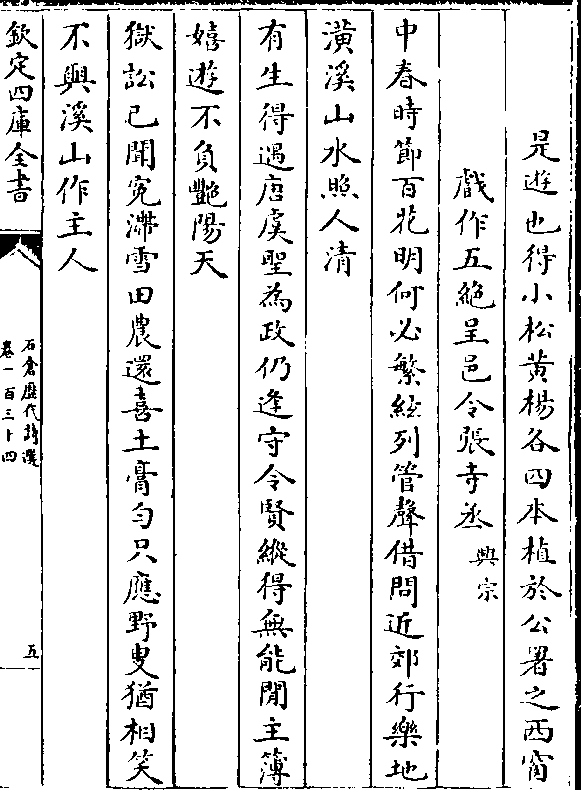 是遊也得小松黄楊各四本植於公署之西窗
戲作五絶呈邑令張寺丞興宗
中春時節百花明何必繁絃列管聲借問近郊行樂地
潢溪山水照人清
有生得遇唐虞聖為政仍逢守令賢縱得無能閒主簿
嬉遊不負艷陽天
獄訟已聞寃滯雪田農還喜土膏勻只應野叟猶相笑
不與溪山作主人
欽定四庫全書
石倉歷代詩選
卷一百三十四
五